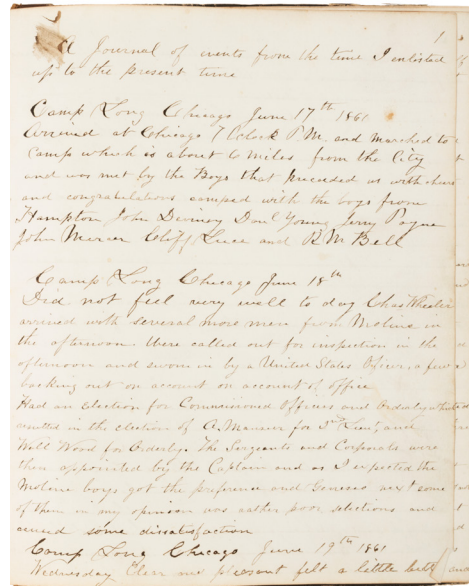 1
A Journal of events from the time I enlisted
up to the present time
Camp Long Chicago June 17th 1861
Arrived at Chicago 7 Oclock P M. and marched to
Camp which is about 6 miles from the City
and was met by the Boys that preceded us with cheers
and congratulations camped with the boys from
Hampton John Danl Young Jerry Payne
John Cliff Luce and B. M. Bell
Camp Long Chicago June 18th
Did not feel very well to day Chas Wheeler
arrived with several more men from Moline in
the afternoon. Were called out for inspection in the
afternoon and sworn in by a United States Officer, a few
backing out on account on account of office
Had an election for Commissioned Officers and Orderly which
resulted in the election of A. for Lieut, and
Will Wood for Orderly. The Sergeants and Corporals were
then appointed by the Captain and as I expected the
Moline boys got the preference and Geneseo next some
of them in my opinion was rather poor selections and
caused some dissatisfaction
Camp Long Chicago June 19th 1861
Wednesday Clear and pleasant felt a little better